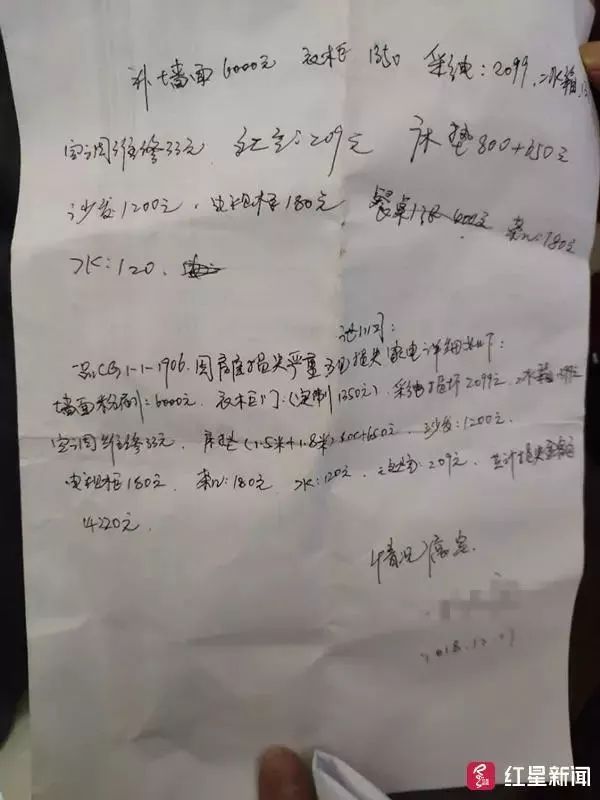 补墙面6000元 衣柜1350 彩电:2099.冰箱
空调维修33元 209元 床垫800+650元
沙发1200元,电视柜180元 餐桌 600元 柰几:180元
水:120.
1-1-1906.因房屋损失严重 损失家电详细如下:
墙面粉刷:6000元.衣柜门:(定制1350元).彩电损坏2099元.冰箱
空调维修33元.床垫(1.5米+1.8米)800+650元.沙发:1200元.
电视柜180元. 180元.水:120元. 209元.共计损失金额
14220元.
情况属实.
2018.12.
红星新闻